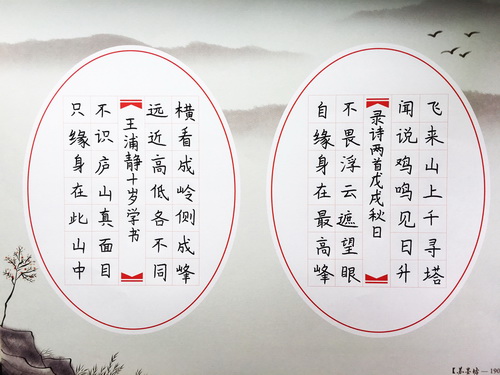 飞来山上千寻塔
闻说鸡鸣见日升
录诗两首戊戌秋日
不畏浮云遮望眼
自缘身在最高峰
横看成岭侧成峰
远近高低各不同
王浦静十岁学书
不识庐山真面目
只缘身在此山中